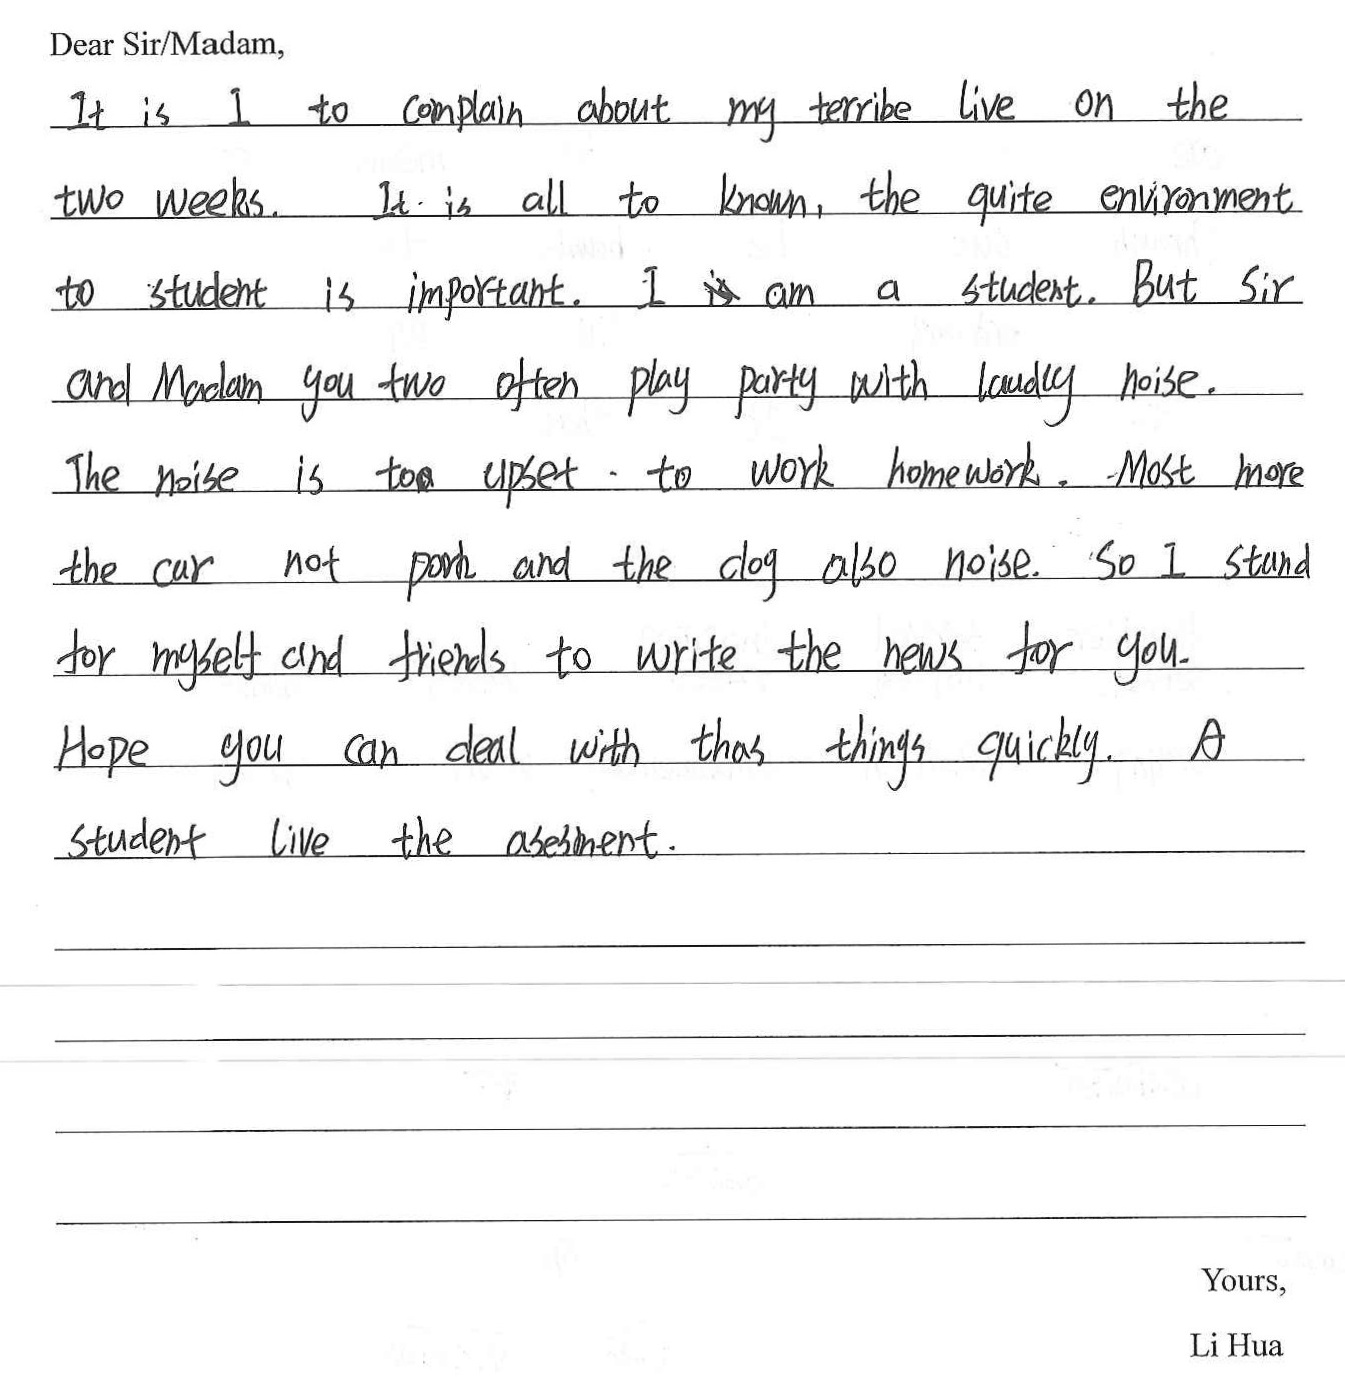 Dear Sir/Madam,
It is I to complain about my terribe live on the
two weeks. It is all to known, the quite environment
to student is important. I am a student. But Sir
and Madam you two often play party with laudly noise.
The noise is too upset to work homework. Most more
the car not park and the dog also noise. So I stand
for myself and friends to write the news for you.
Hope you can deal with thas things quickly. A
student live the asesment.
Yours,
Li Hua